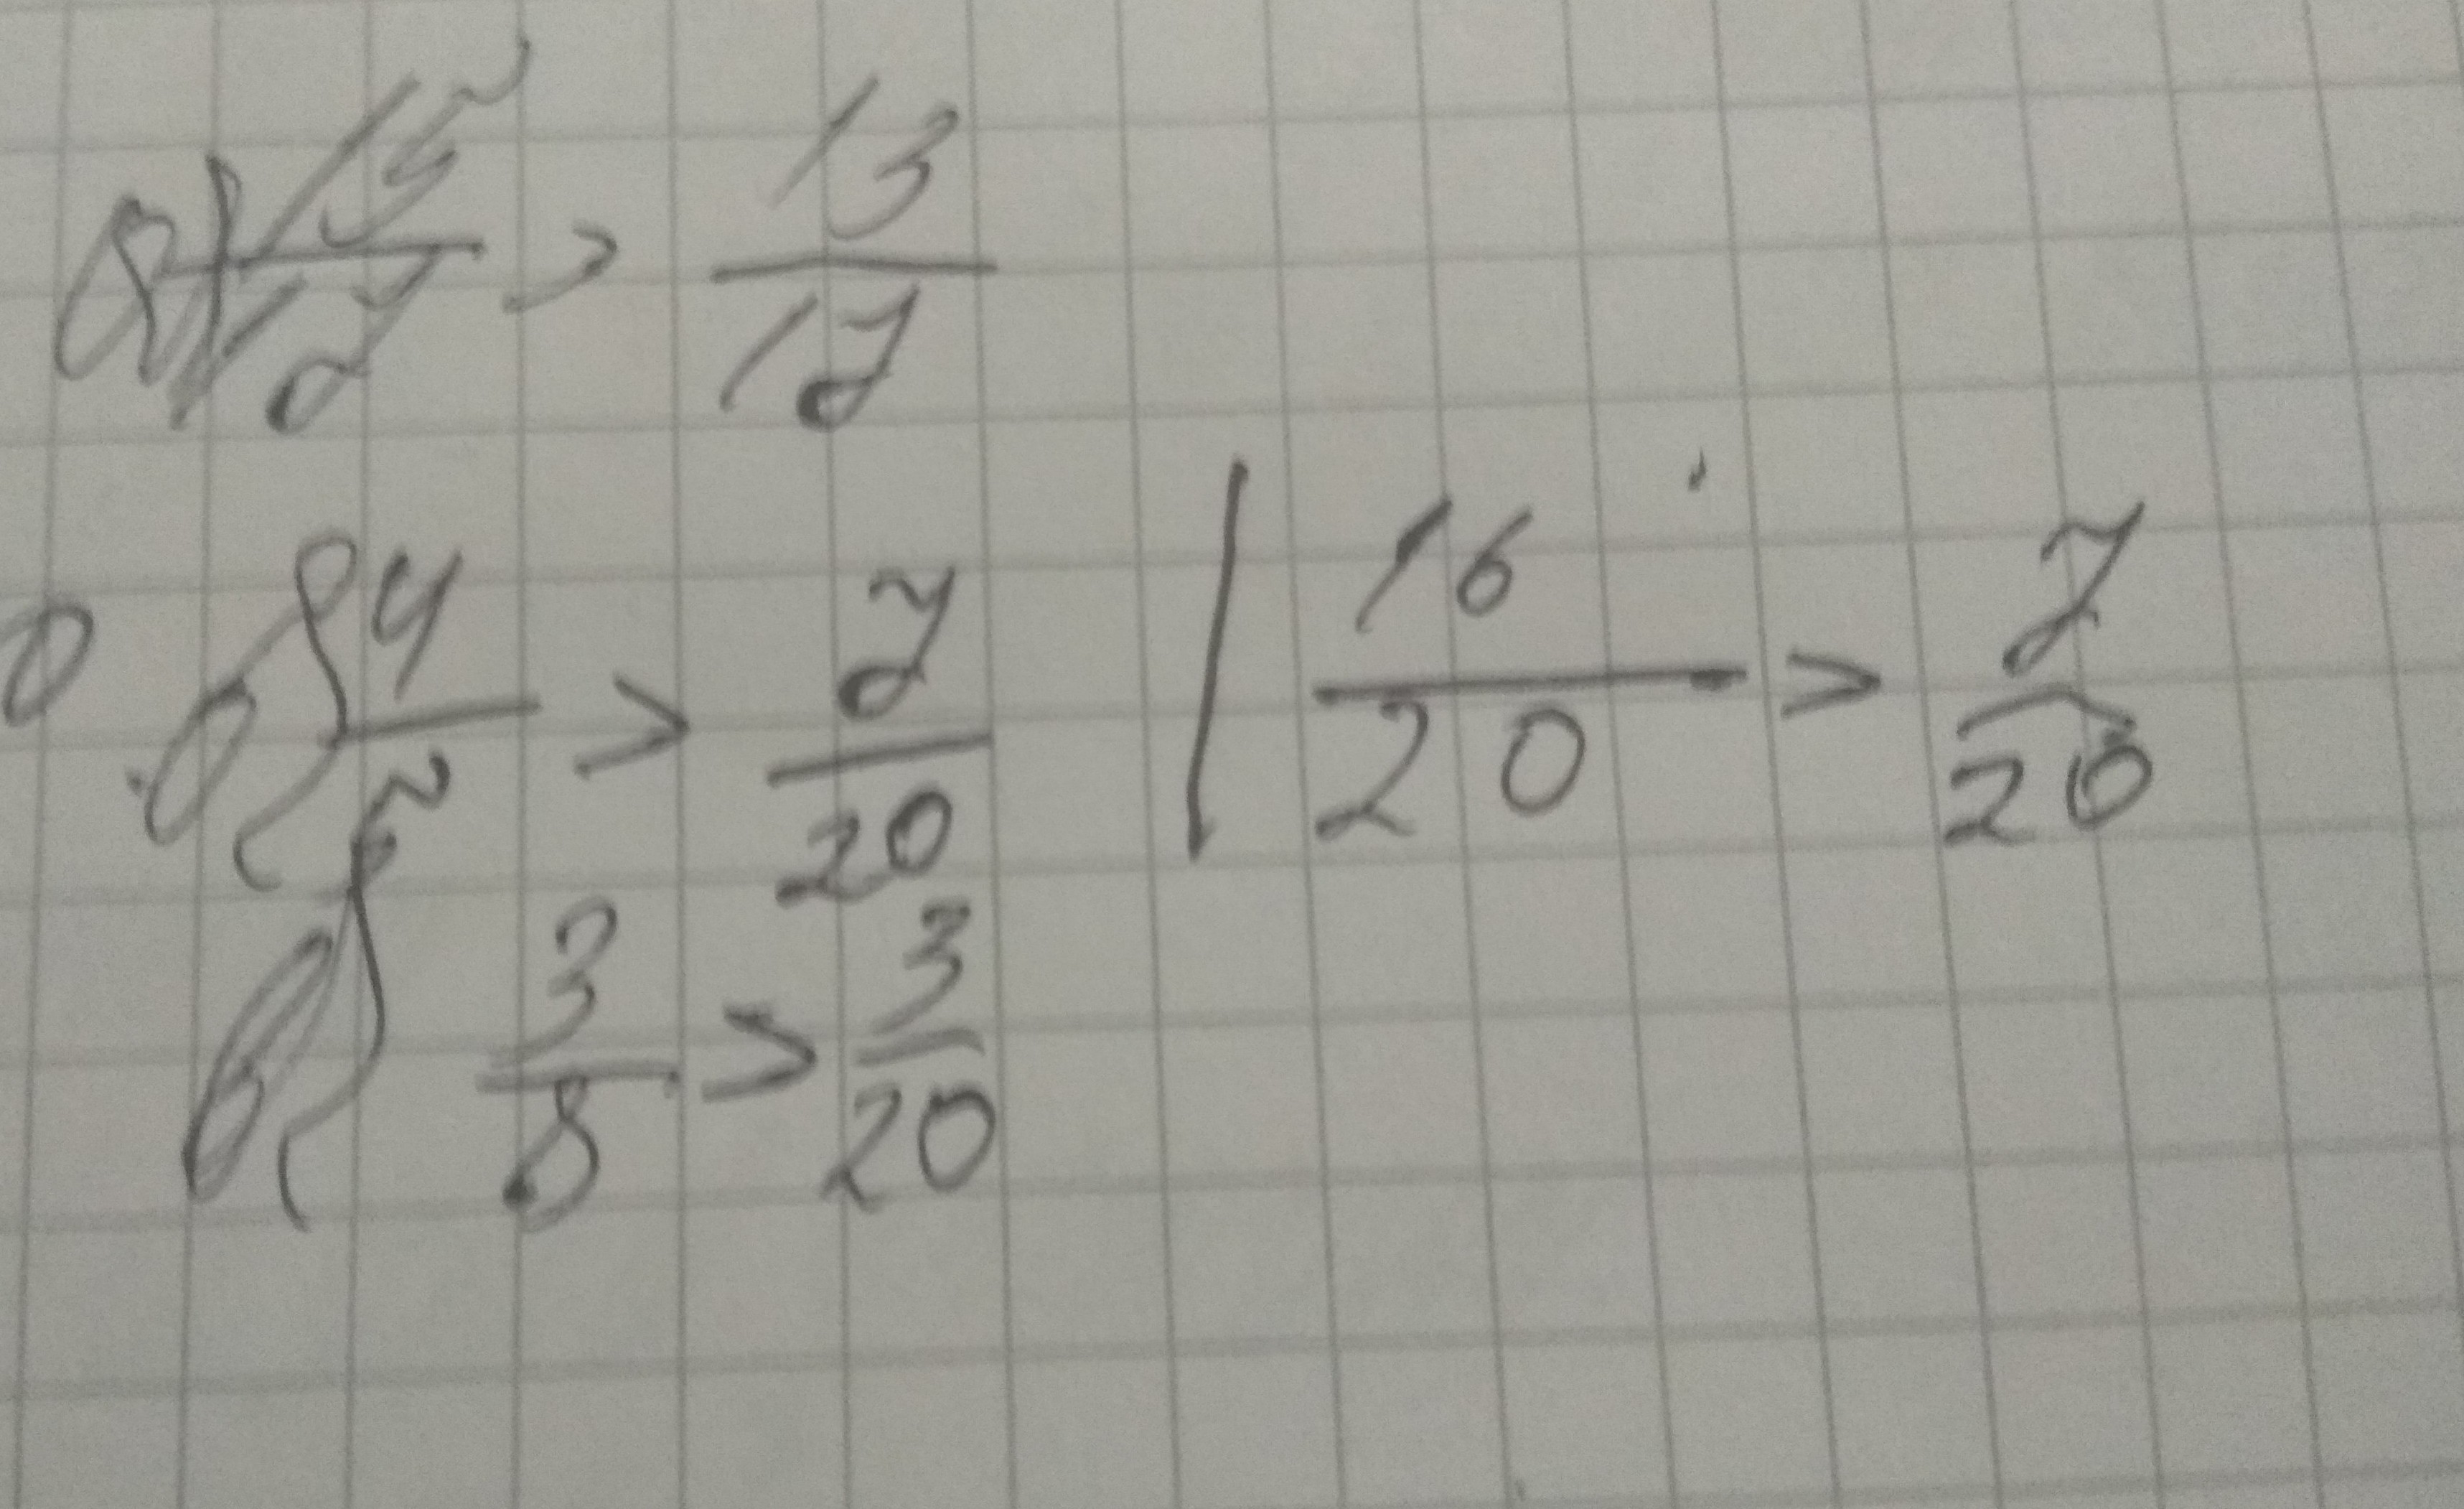 а) 15/17 > 13/17
б) 4/5 > 7/20 | 16/20 > 7/20
в) 3/8 > 3/20